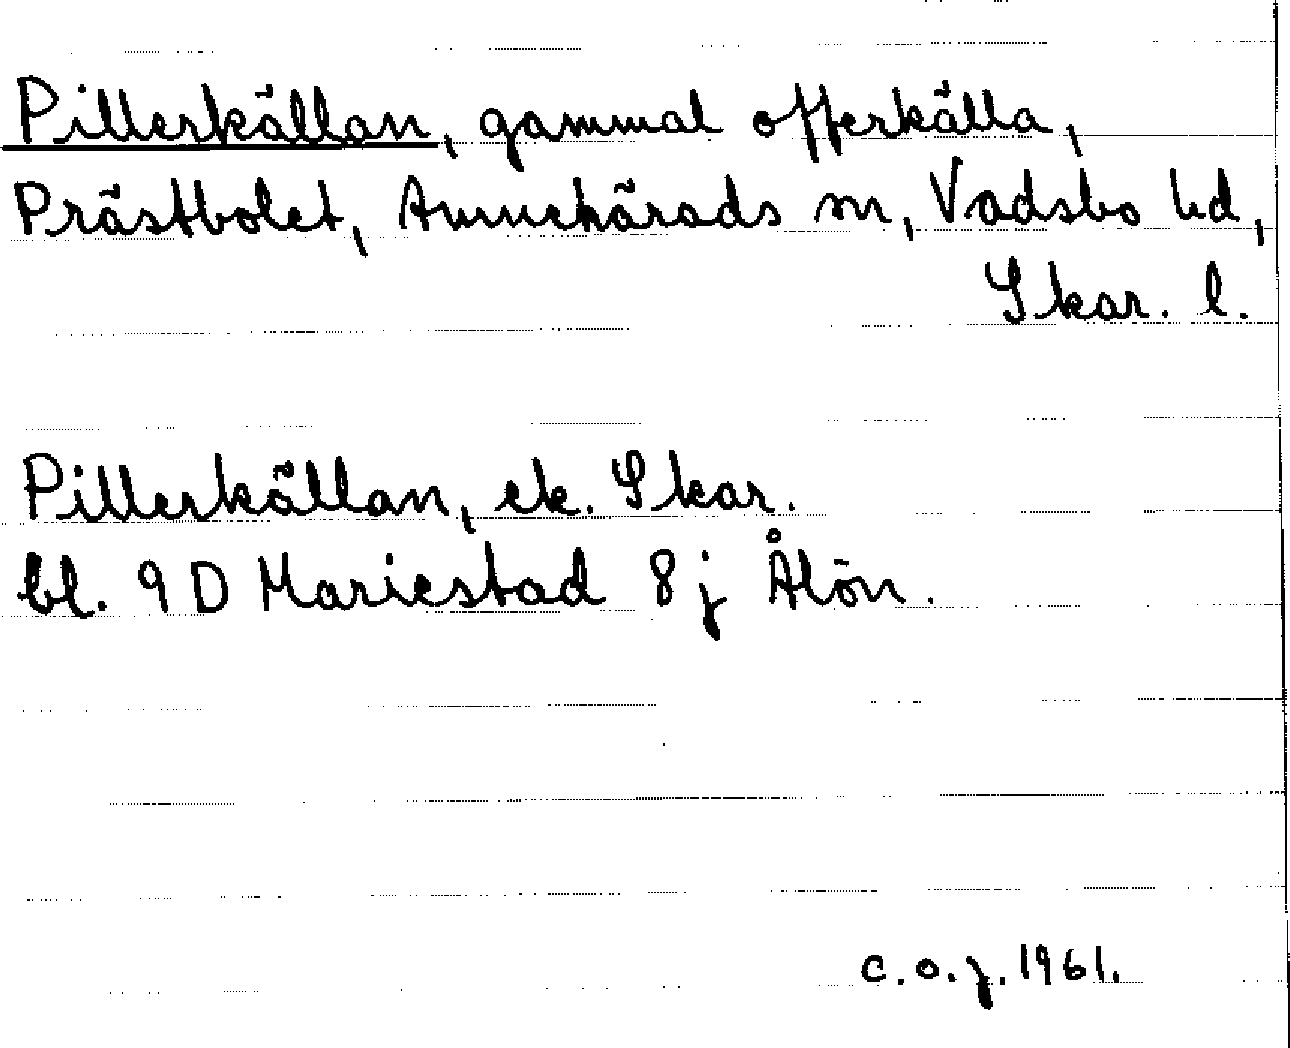 Pillerkällan, gammal offerkälla,
Prästbolet, Amnehärads sn, Vadsbo hd,
Skar. l.
Pillerkällan, ek. Skar.
bl. 9 D Mariestad 8 jÅlön.
c.o.j. 1961.